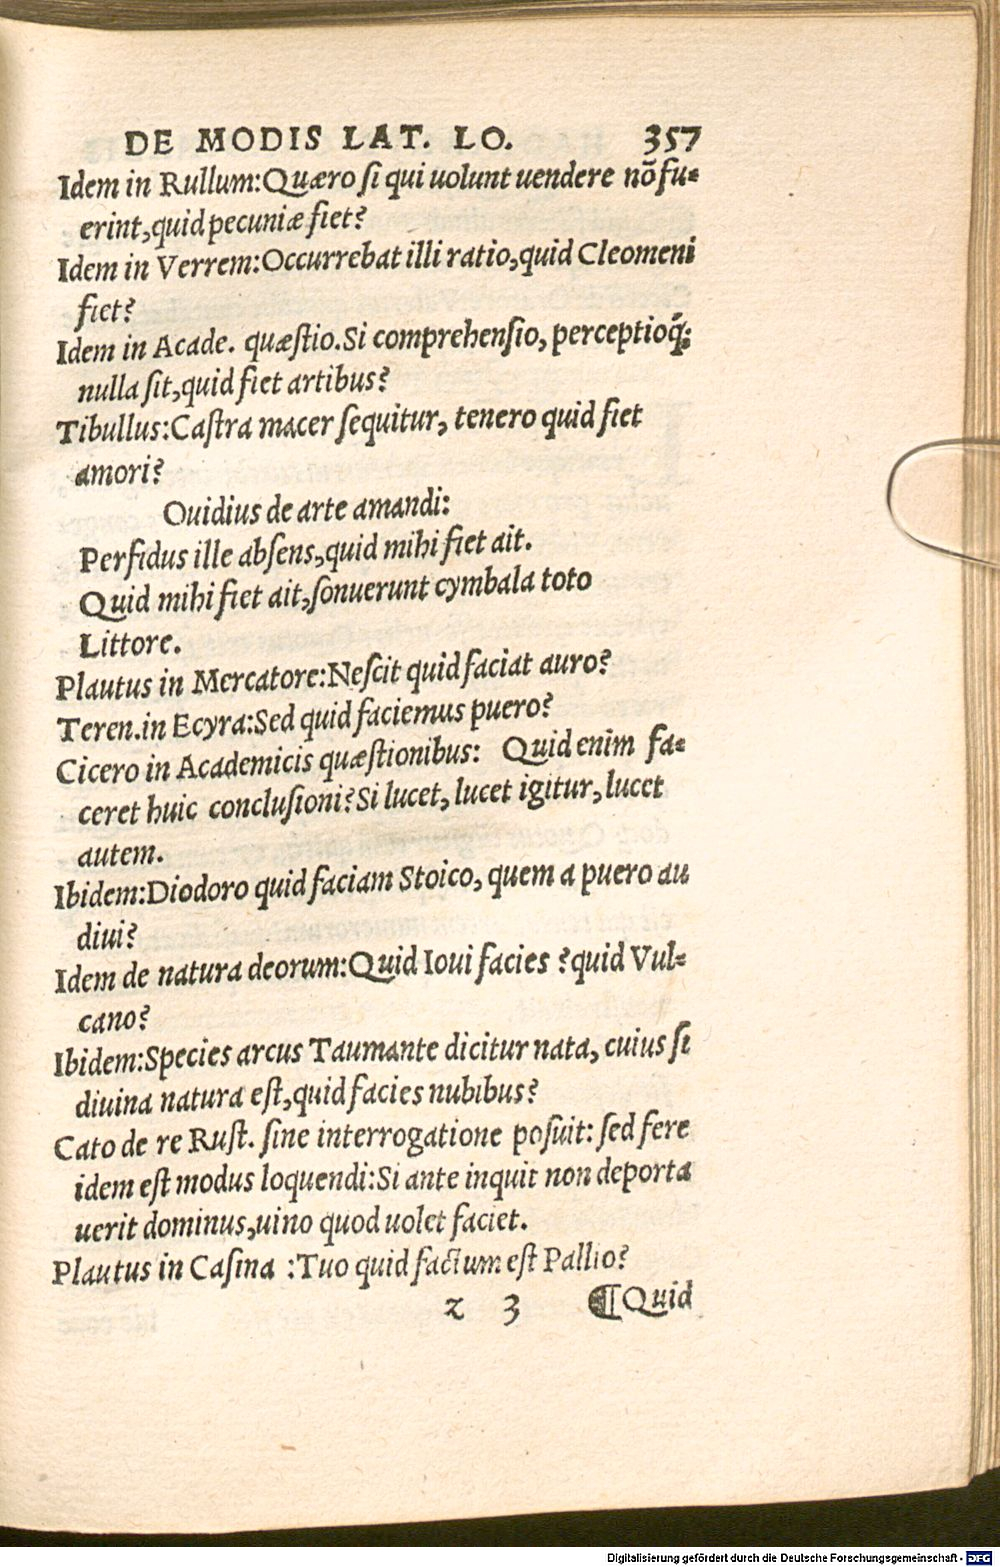 DE MODIS LAT. LO. 357
Idem in Rullum:Quæro ſi qui uolunt uendere nõ fu-
erint,quid pecuniæ fiet?
Idem in Verrem:Occurrebat illi ratio,quid Cleomeni
fiet?
Idem in Acade. quæſtio.Si comprehenſio, perceptioq́;
nulla ſit,quid fiet artibus?
Tibullus:Caſtra macer ſequitur, tenero quid fiet
amori?
Ouidius de arte amandi:
Perfidus ille abſens,quid mihi fiet ait.
Quid mihi fiet ait,ſonuerunt cymbala toto
Littore.
Plautus in Mercatore:Neſcit quid faciat auro?
Teren.in Ecyra:Sed quid faciemus puero?
Cicero in Academicis quæſtionibus: Quid enim fa-
ceret huic concluſioni?Si lucet, lucet igitur, lucet
autem.
Ibidem:Diodoro quid faciam Stoico, quem a puero au
diui?
Idem de natura deorum:Quid Ioui facies ?quid Vul-
cano?
Ibidem:Species arcus Taumante dicitur nata, cuius ſi
diuina natura eſt,quid facies nubibus?
Cato de re Ruſt. ſine interrogatione poſuit: ſed fere
idem eſt modus loquendi:Si ante inquit non deporta
uerit dominus,uino quod uolet faciet.
Plautus in Caſina :Tuo quid factum eſt Pallio?
z 3 ¶Quid
Digitalisierung gefördert durch die Deutsche Forschungsgemeinschaft - DFG